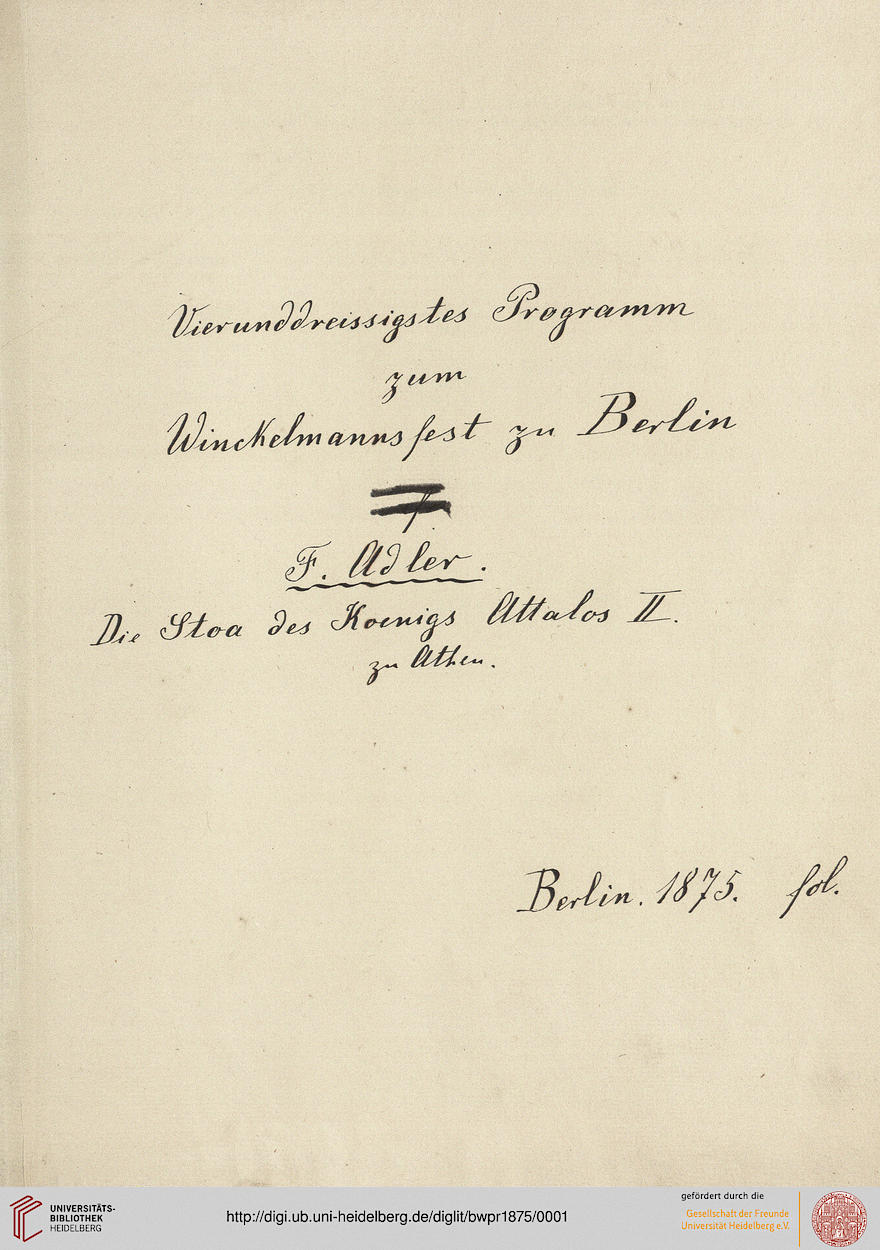 Vierunddreissigstes Programm
zum
Winckelmannsfest zu Berlin
F. Adler.
Die Stoa des Koenigs Attalos II.
zu Athen.
Berlin. 1875. fol.
UNIVERSITÄTS-
BIBLIOTHEK
HEIDELBERG
http://digi.ub.uni-heidelberg.de/diglit/bwpr1875/0001
gefördert durch die
Gesellschaft der Freunde
Universität Heidelberg e.V.